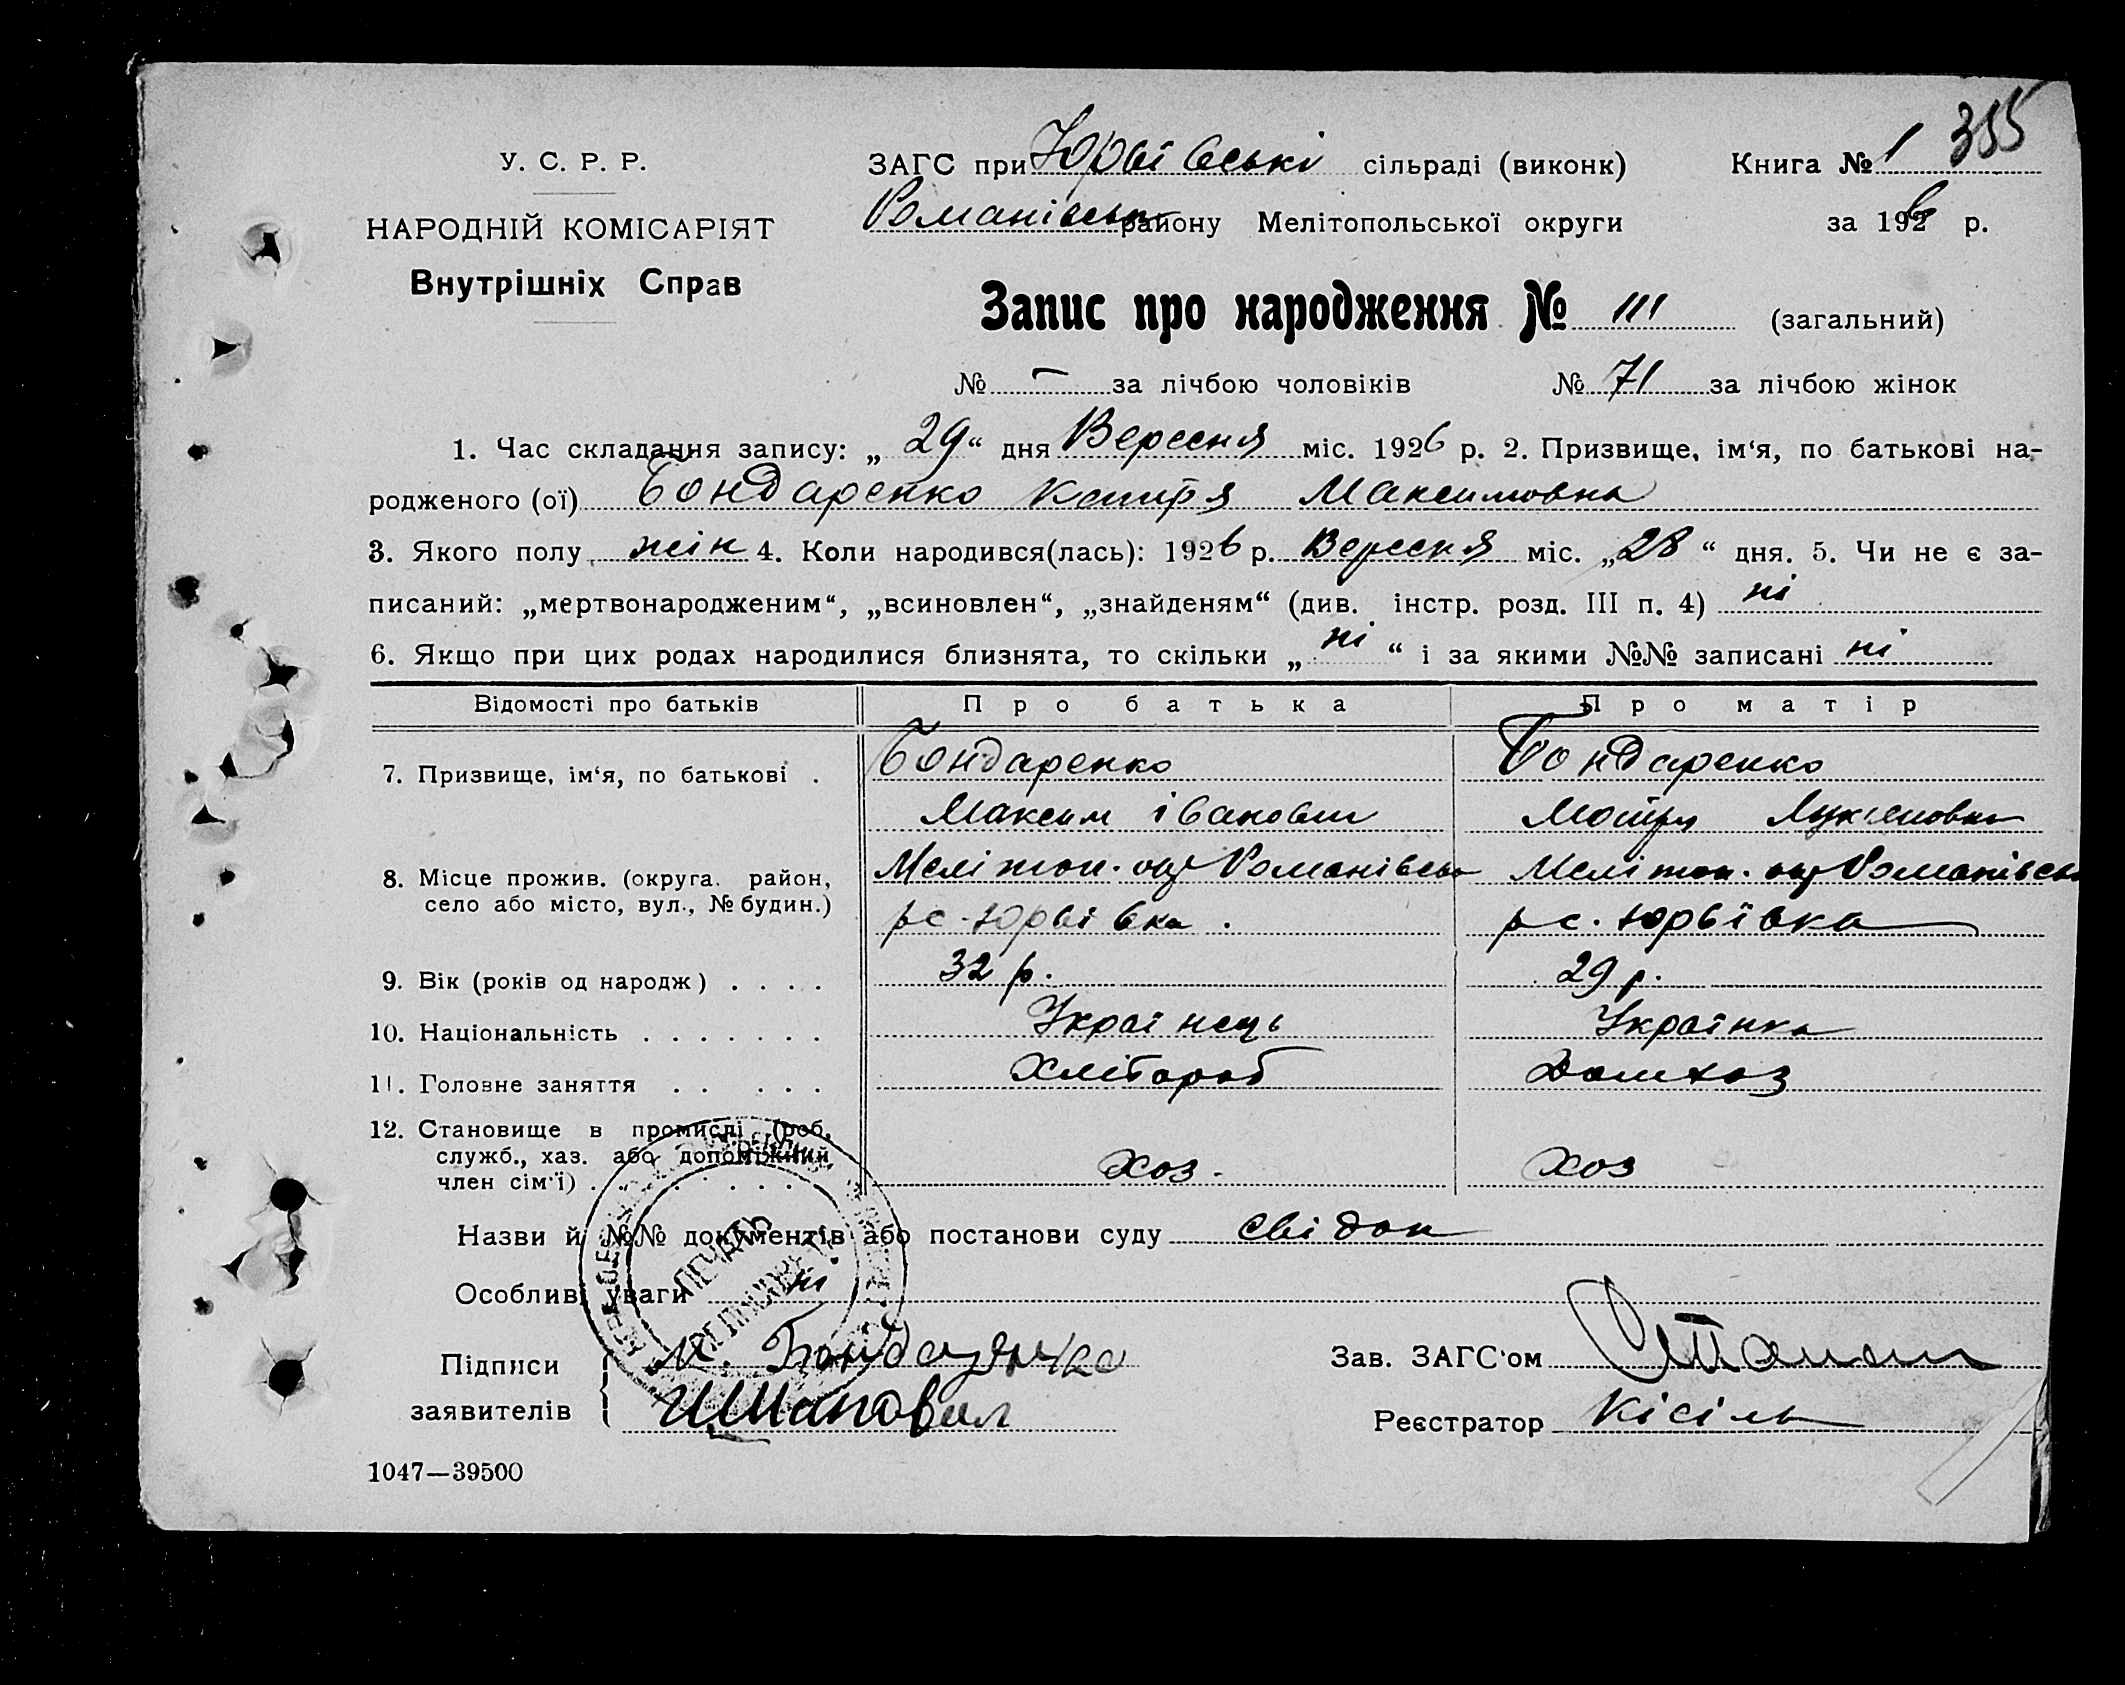 355
У. С. Р. Р.
ЗАГС при Юрвівські сільраді (виконк) Книга № 1
НАРОДНІЙ КОМІСАРІЯТ
Романівськ району Мелітопольської округи за 1926 р.
Внутрішніх Справ
Запис про народження № 111 (загальний)
№ — за лічбою чоловіків № 71 за лічбою жінок
1. Час складання запису: „ 29 “ дня Вересня міс. 1926 р. 2. Призвище, ім‘я, по батькові на-
родженого (ої) Бондаренко Катря Максимовна
3. Якого полу жін 4. Коли народився(лась): 1926 р. Вересня міс. „ 28 “ дня. 5. Чи не є за-
писаний: „мертвонародженим“, „всиновлен“, „знайденям“ (див. інстр. розд. III п. 4) ні
6. Якщо при цих родах народилися близнята, то скільки „ ні “ і за якими №№ записані ні
Відомості про батьків Про батька Про матір
7. Призвище, ім‘я, по батькові . Бондаренко Бондаренко
Максим Іванович Мотря
8. Місце прожив. (округа. район, Мелітоп. окр Романівськ Мелітоп. окр Романівськ
село або місто, вул., № будин.) р с. Юрвівка . р с. Юрвівка
9. Вік (років од народж) . . . . 32 р. 29 р.
10. Національність . . . . . . . Українець Українка
11. Головне заняття . . . . . Хлібороб Домхоз
12. Становище в промислі (роб,
служб., хаз. або допоміжний
член сім‘ї) . . . . . . Хоз. Хоз
Назви й №№ документів або постанови суду свідок
Особливі уваги ні
ПЕЧАТЬ
Підписи М. Бондаренко Зав. ЗАГС‘ом
заявителів Реєстратор Кісіль
1047—39500